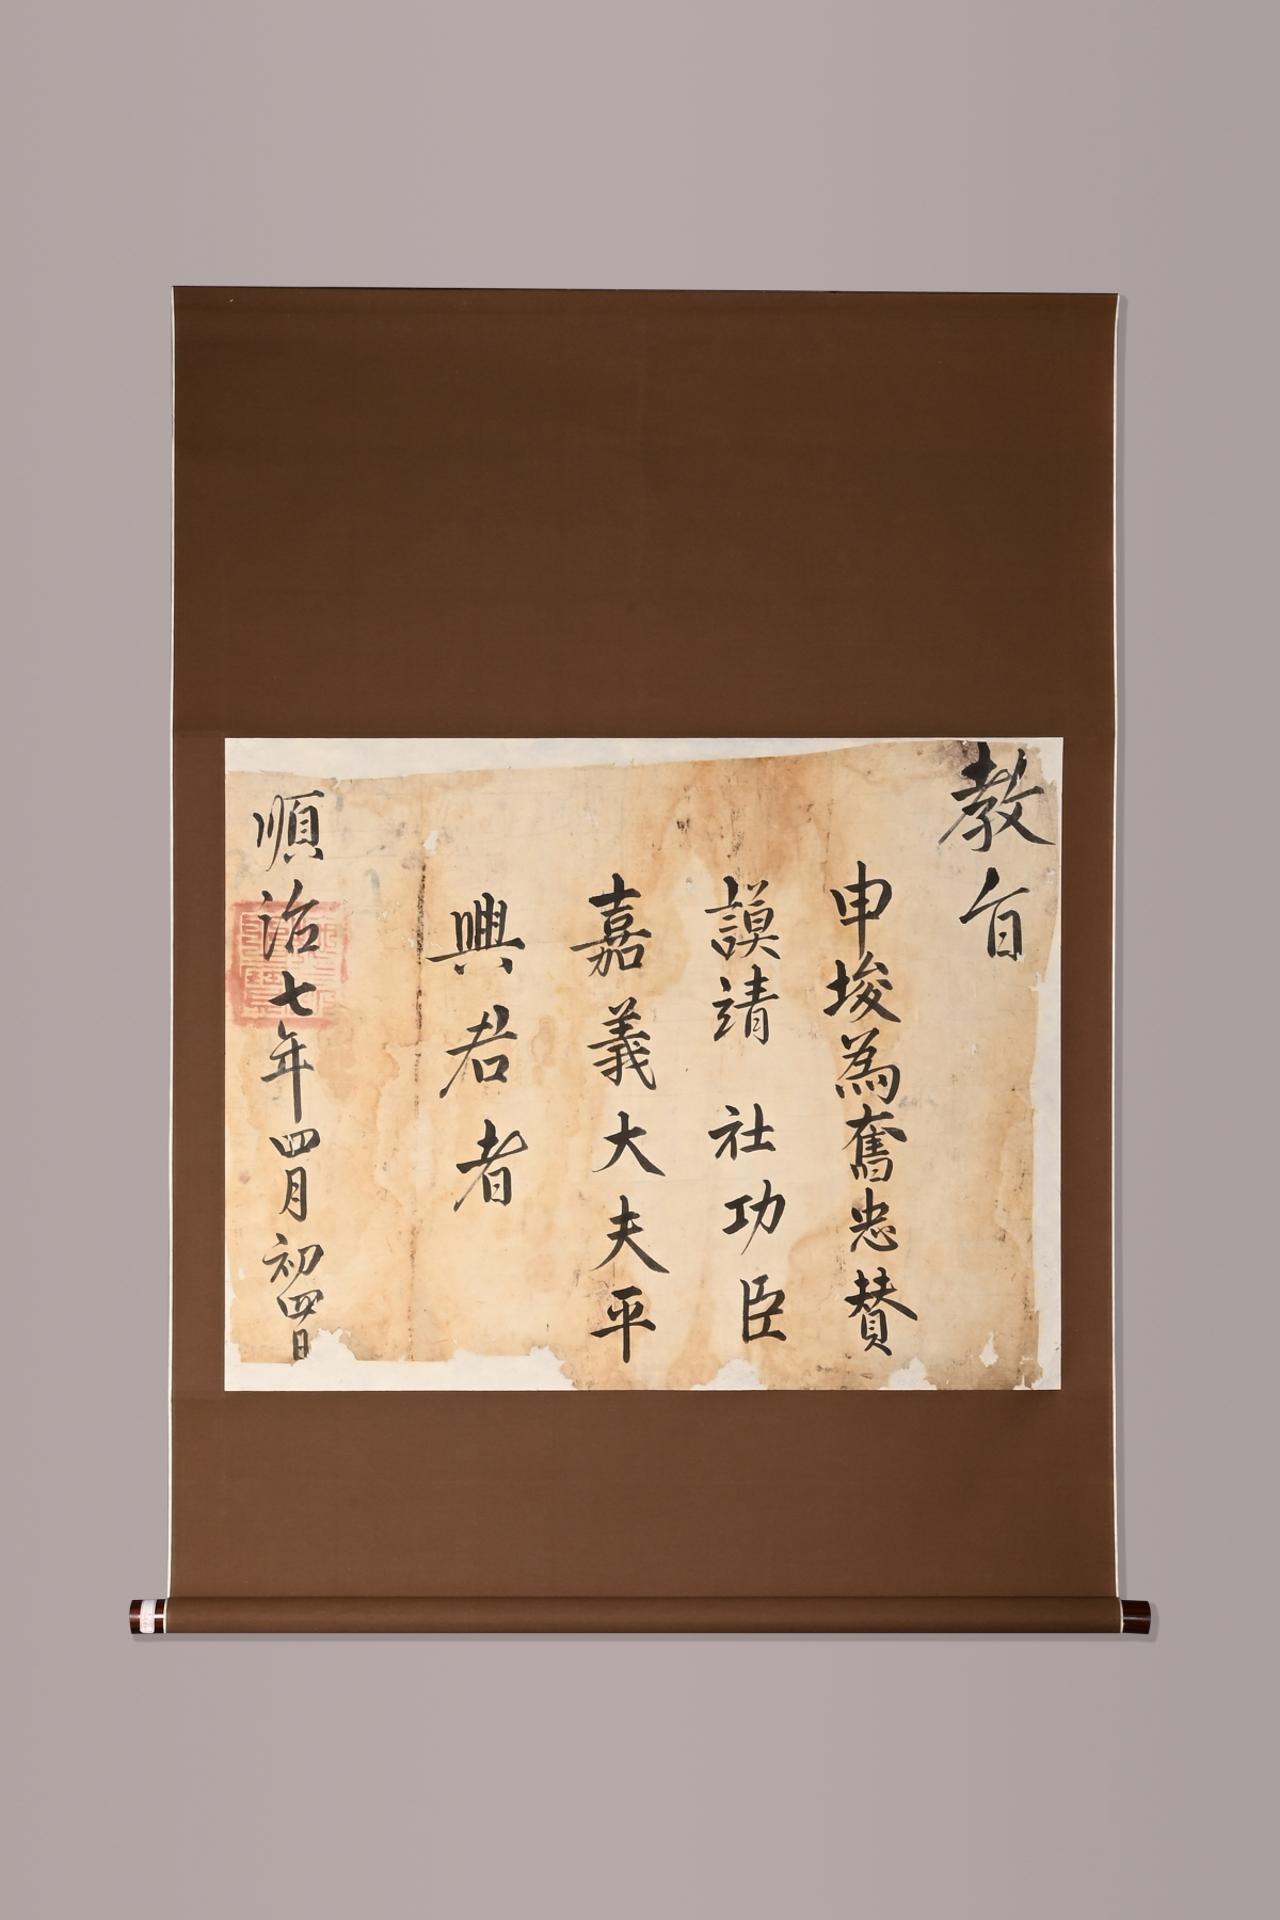 教旨
申埈為奮忠賛
謨靖 社功臣
嘉義大夫平
興君者
順治七年四月初四日